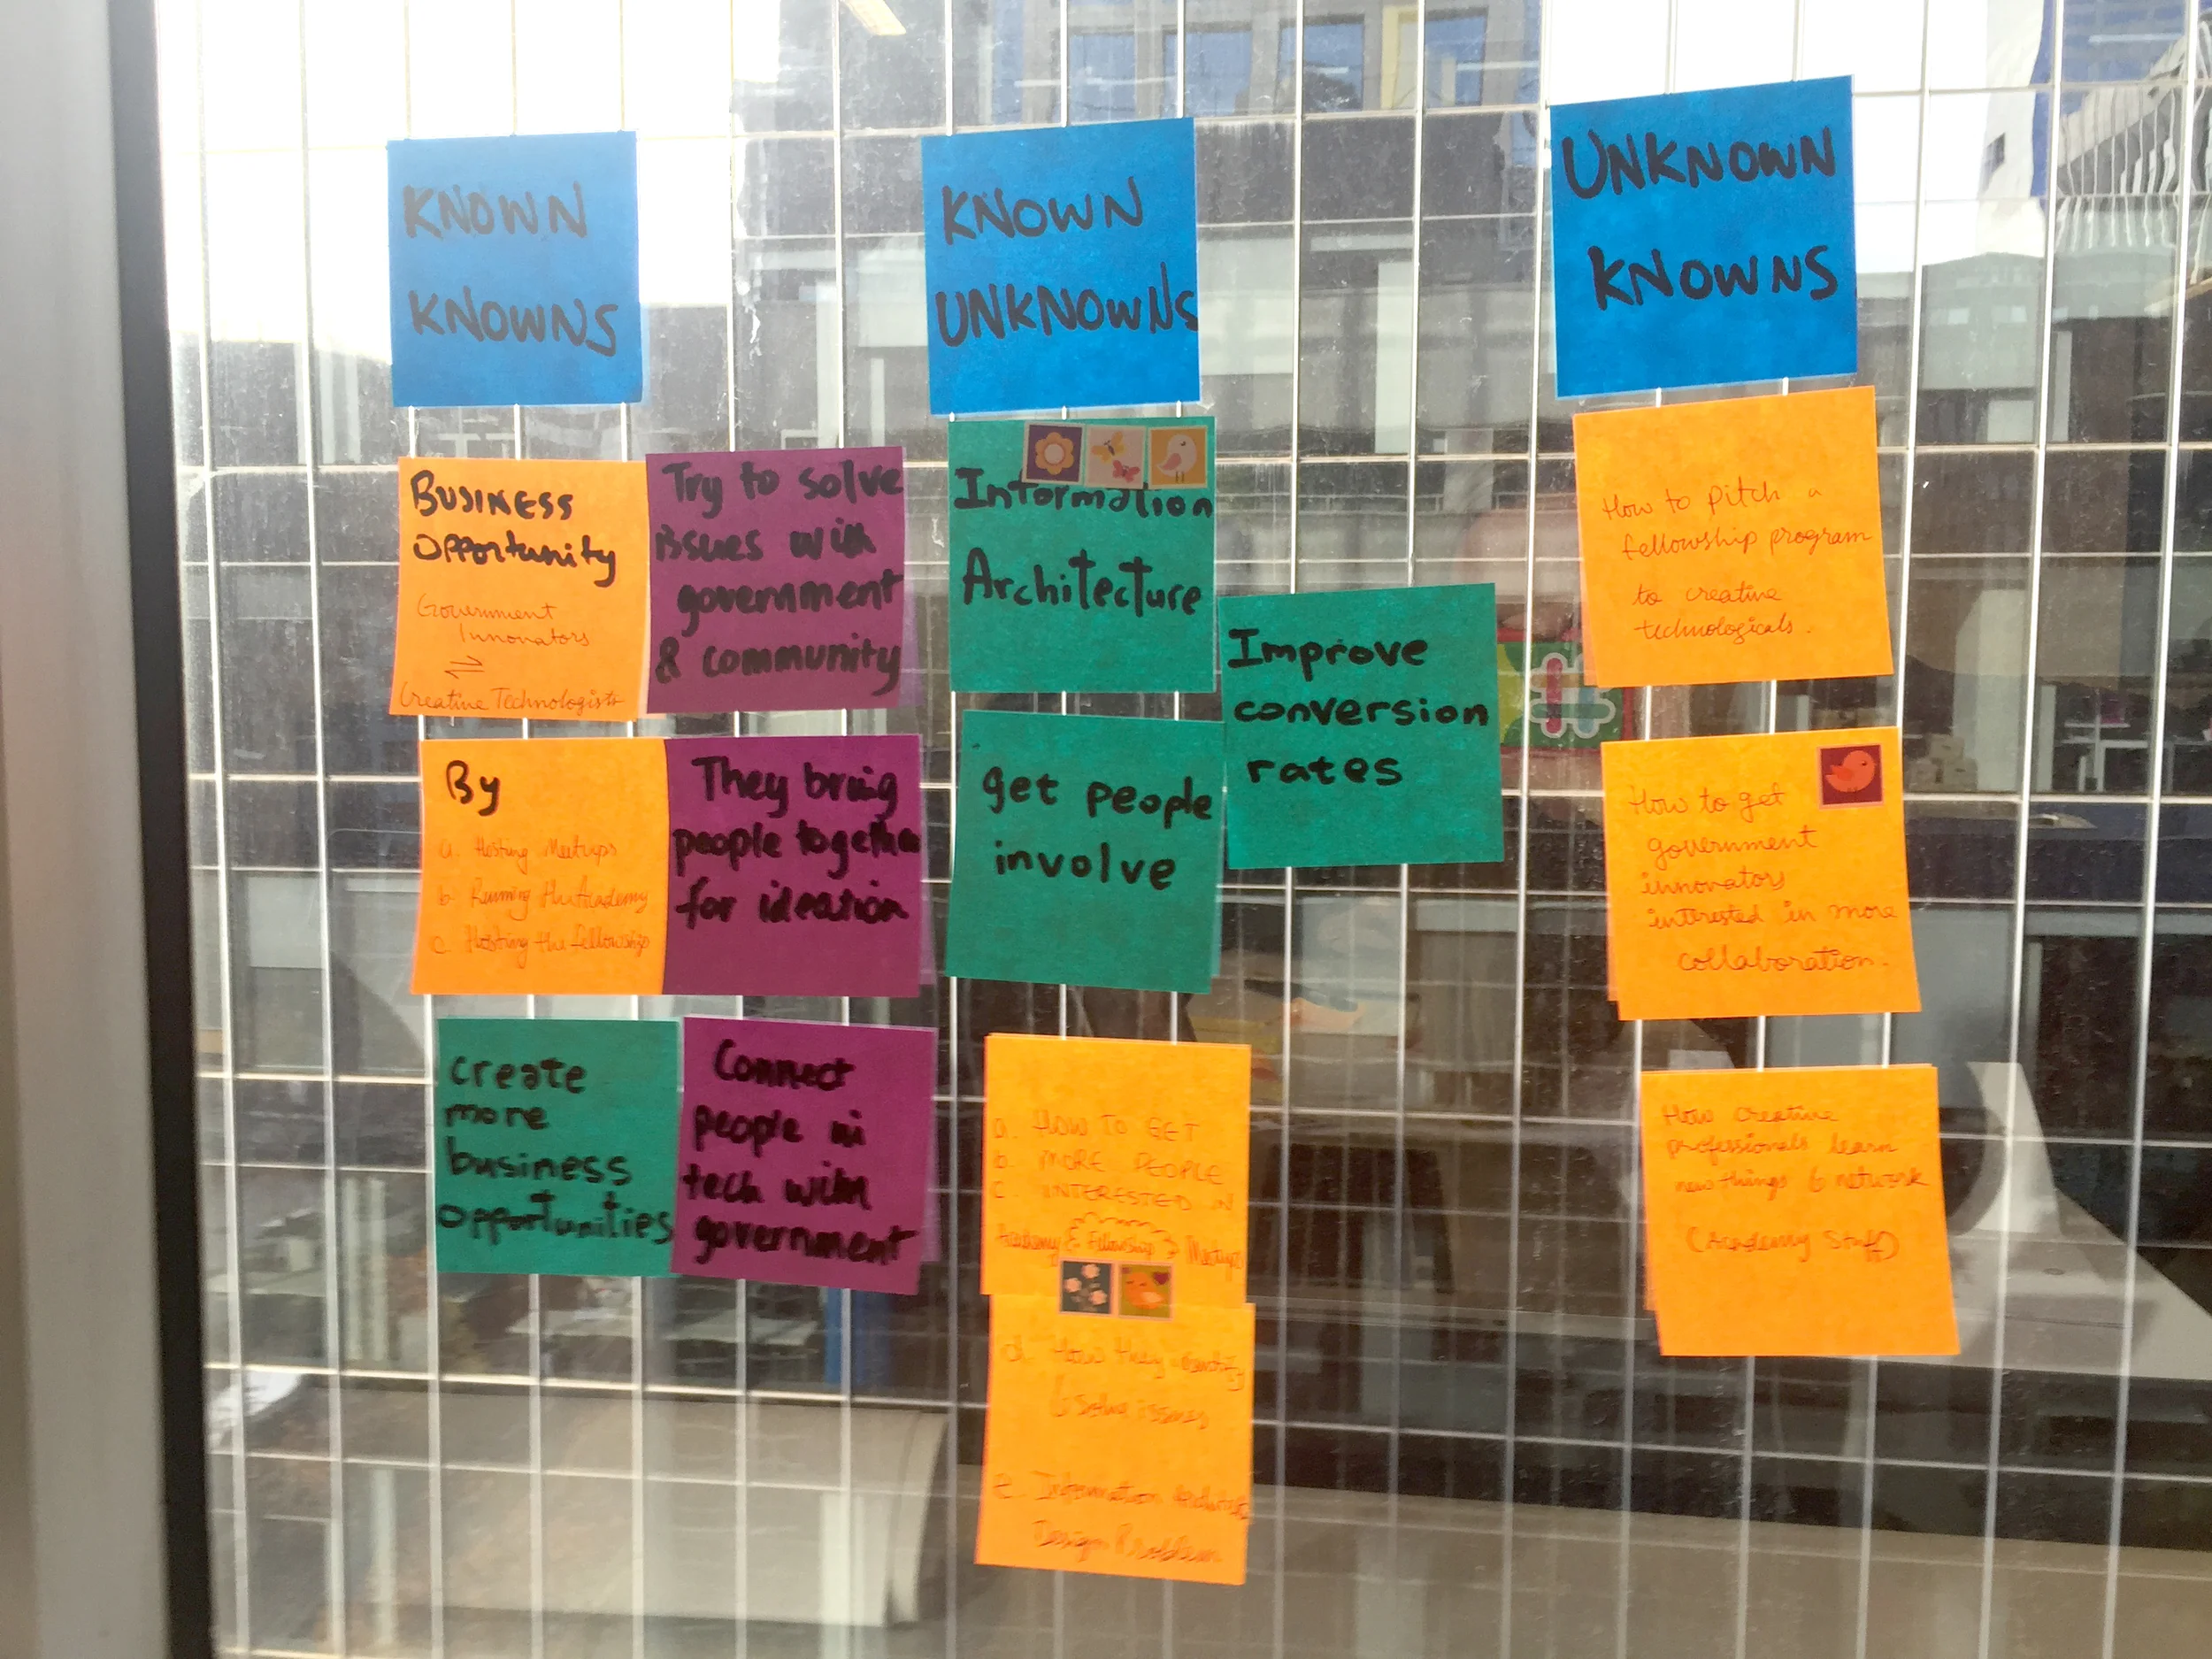 KNOWN
KNOWNS
BUSINESS
Opportunity
Government
Innovators
Creative Technologists
Try to solve
issues with
government
& community
By
a. Hosting Meetups
b. Running the Academy
c. Hosting the fellowship
They bring
people together
for ideation
create
more
business
opportunities
Connect
people in
tech with
government
KNOWN
UNKNOWNS
Information
Architecture
get people
involve
Improve
conversion
rates
a. HOW TO GET
b. MORE PEOPLE
c. INTERESTED IN
Academy & Fellowship & Meetups
d. How they identify
& solve issues
e. Information Architecture
Design Problem
UNKNOWN
KNOWNS
How to pitch a
fellowship program
to creative
technologicals.
How to get
government
innovators
interested in more
collaboration.
How creative
professionals learn
new things & network
(Academy Stuff)